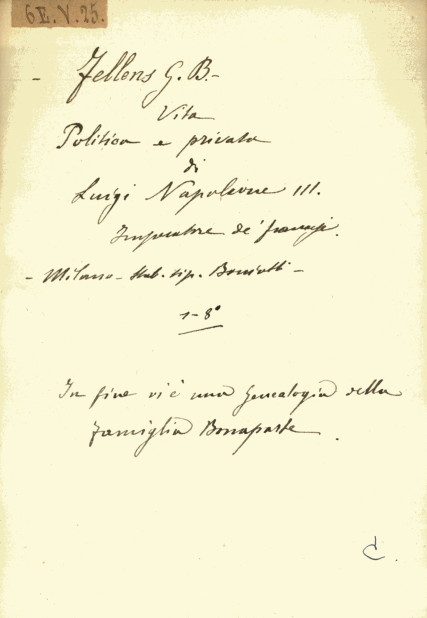 6E.V.25.
- Fellens G. B. -
Vita
Politica e privata
di
Luigi Napoleone III.
Imperatore de' francesi.
- Milano - Stab. tip. Boniotti -
1-8°
In fine vi è una Genealogia della
famiglia Bonaparte.
C.